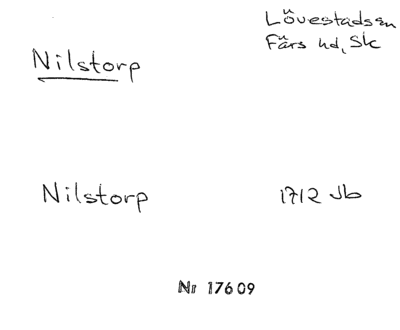 Lövestads sn
Färs hd, Sk
Nilstorp
Nilstorp 1712 Jb
Nr 17609